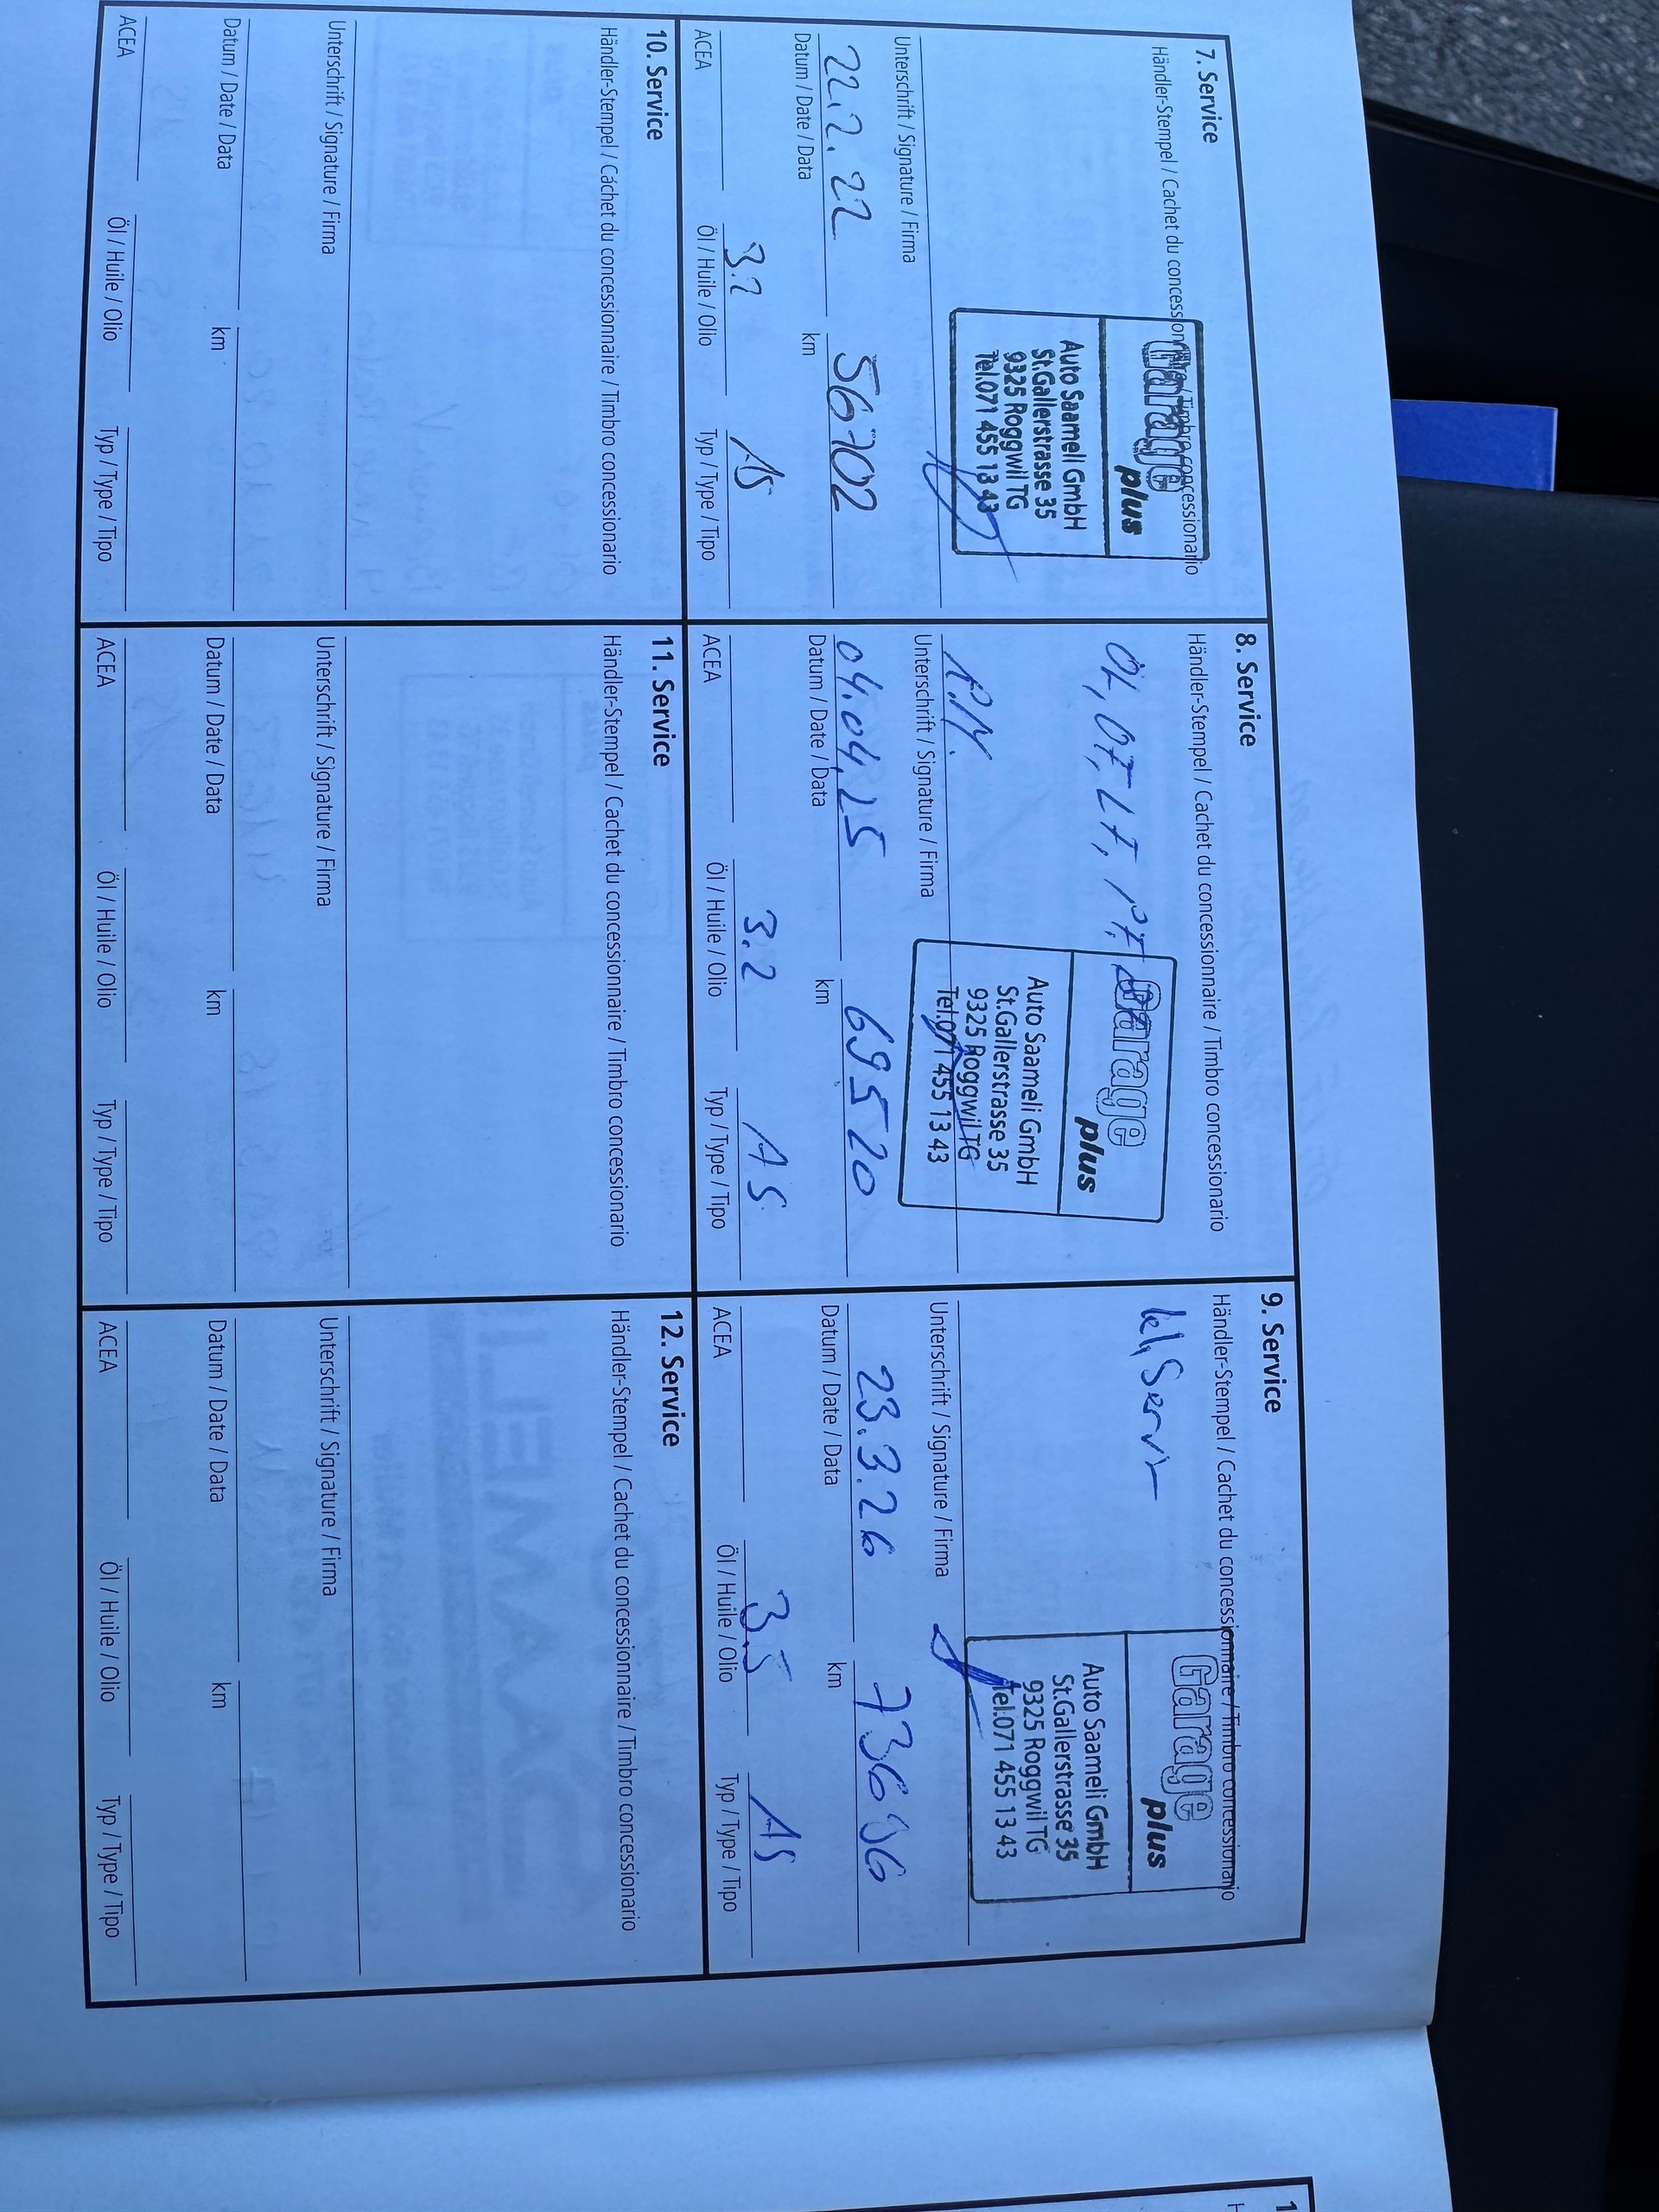 7. Service
Händler-Stempel / Cachet du concessionnaire / Timbro concessionario
Garage plus
Auto Saameli GmbH
St.Gallerstrasse 35
9325 Roggwil TG
Tel.071 455 13 43
Unterschrift / Signature / Firma
22.2.22 56702
Datum / Date / Data km
3.2 A5
ACEA Öl / Huile / Olio Typ / Type / Tipo
8. Service
Händler-Stempel / Cachet du concessionnaire / Timbro concessionario
Garage plus
Auto Saameli GmbH
St.Gallerstrasse 35
9325 Roggwil TG
Tel.071 455 13 43
Unterschrift / Signature / Firma
04.04.25 69520
Datum / Date / Data km
3.2 A5
ACEA Öl / Huile / Olio Typ / Type / Tipo
9. Service
Händler-Stempel / Cachet du concessionnaire / Timbro concessionario
Garage plus
Auto Saameli GmbH
St.Gallerstrasse 35
9325 Roggwil TG
Tel.071 455 13 43
Unterschrift / Signature / Firma
23.3.26
Datum / Date / Data km
3.5 A5
ACEA Öl / Huile / Olio Typ / Type / Tipo
10. Service
Händler-Stempel / Cachet du concessionnaire / Timbro concessionario
Unterschrift / Signature / Firma
Datum / Date / Data km
ACEA Öl / Huile / Olio Typ / Type / Tipo
11. Service
Händler-Stempel / Cachet du concessionnaire / Timbro concessionario
Unterschrift / Signature / Firma
Datum / Date / Data km
ACEA Öl / Huile / Olio Typ / Type / Tipo
12. Service
Händler-Stempel / Cachet du concessionnaire / Timbro concessionario
Unterschrift / Signature / Firma
Datum / Date / Data km
ACEA Öl / Huile / Olio Typ / Type / Tipo